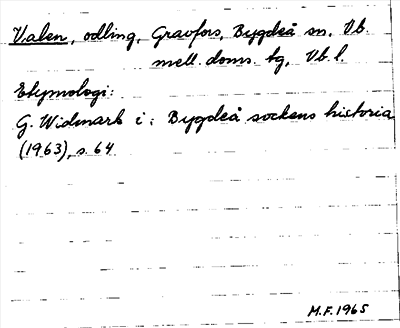 Valen, odling, Gravfors, Bygdeå sn, Vb.
mell. doms. tg, Vb. l.
Etymologi:
G. Widmark i: Bygdeå sockens historia
(1963), s. 64
M.F. 1965